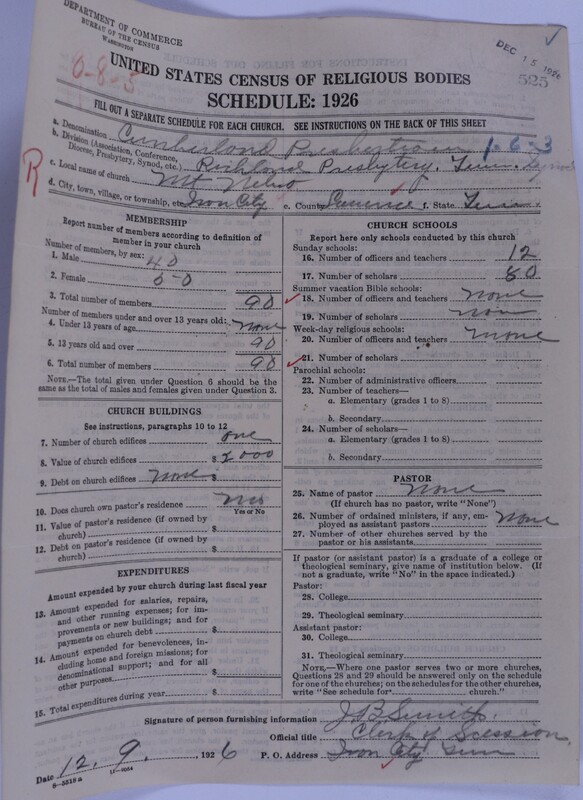 DEPARTMENT OF COMMERCE
BUREAU OF THE CENSUS
WASHINGTON
DEC 15 1926
525
0-8-5
UNITED STATES CENSUS OF RELIGIOUS BODIES
SCHEDULE: 1926
FILL OUT A SEPARATE SCHEDULE FOR EACH CHURCH. SEE INSTRUCTIONS ON THE BACK OF THIS SHEET
a. Denomination Cumberland Presbyterian 1-6-3
b. Division (Association, Conference, Diocese, Presbytery, Synod, etc.) Richland Presbytery. Tenn. Synod
R
c. Local name of church Mt Nebo
d. City, town, village, or township, etc. Iron City e. County Lawrence f. State Tenn
MEMBERSHIP
Report number of members according to definition of member in your church
Number of members, by sex:
1. Male 40
2. Female 50
3. Total number of members 90
Number of members under and over 13 years old:
4. Under 13 years of age None
5. 13 years old and over 90
6. Total number of members 90
NOTE.—The total given under Question 6 should be the same as the total of males and females given under Question 3.
CHURCH BUILDINGS
See instructions, paragraphs 10 to 12
7. Number of church edifices one
8. Value of church edifices $2000
9. Debt on church edifices None $
10. Does church own pastor's residence No
Yes or No
11. Value of pastor's residence (if owned by church) $
12. Debt on pastor's residence (if owned by church) $
EXPENDITURES
Amount expended by your church during last fiscal year
13. Amount expended for salaries, repairs, and other running expenses; for improvements or new buildings; and for payments on church debt $
14. Amount expended for benevolences, including home and foreign missions; for denominational support; and for all other purposes $
15. Total expenditures during year $
CHURCH SCHOOLS
Report here only schools conducted by this church
Sunday schools:
16. Number of officers and teachers 12
17. Number of scholars 80
Summer vacation Bible schools:
18. Number of officers and teachers None
19. Number of scholars None
Week-day religious schools:
20. Number of officers and teachers None
21. Number of scholars
Parochial schools:
22. Number of administrative officers
23. Number of teachers—
a. Elementary (grades 1 to 8)
b. Secondary
24. Number of scholars—
a. Elementary (grades 1 to 8)
b. Secondary
PASTOR
25. Name of pastor None
(If church has no pastor, write "None")
26. Number of ordained ministers, if any, employed as assistant pastors None
27. Number of other churches served by the pastor or his assistants
If pastor (or assistant pastor) is a graduate of a college or theological seminary, give name of institution below. (If not a graduate, write "No" in the space indicated.)
Pastor:
28. College
29. Theological seminary
Assistant pastor:
30. College
31. Theological seminary
NOTE.—Where one pastor serves two or more churches, Questions 28 and 29 should be answered only on the schedule for one of the churches; on the schedules for the other churches, write "See schedule for church."
Signature of person furnishing information J.B. Smith
Official title Clerk of Scession
Date 12, 9, 1926 P. O. Address Iron City Tenn
8-5518 a 11-9034